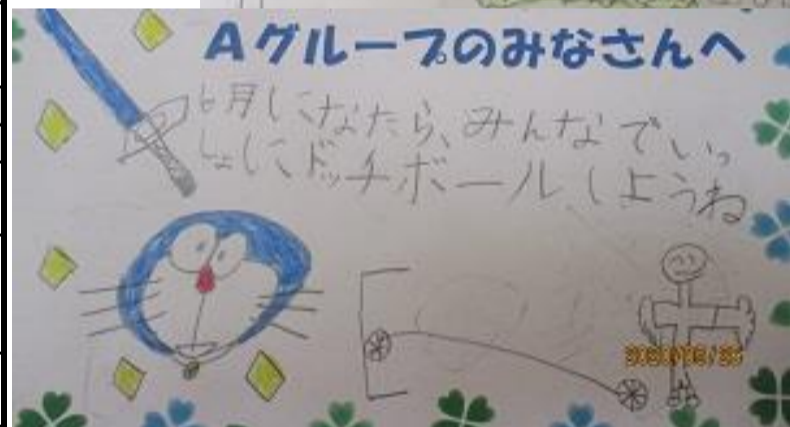 Aグループのみなさんへ
6月になたら、みんなでいっ
しょにドッチボールしようね